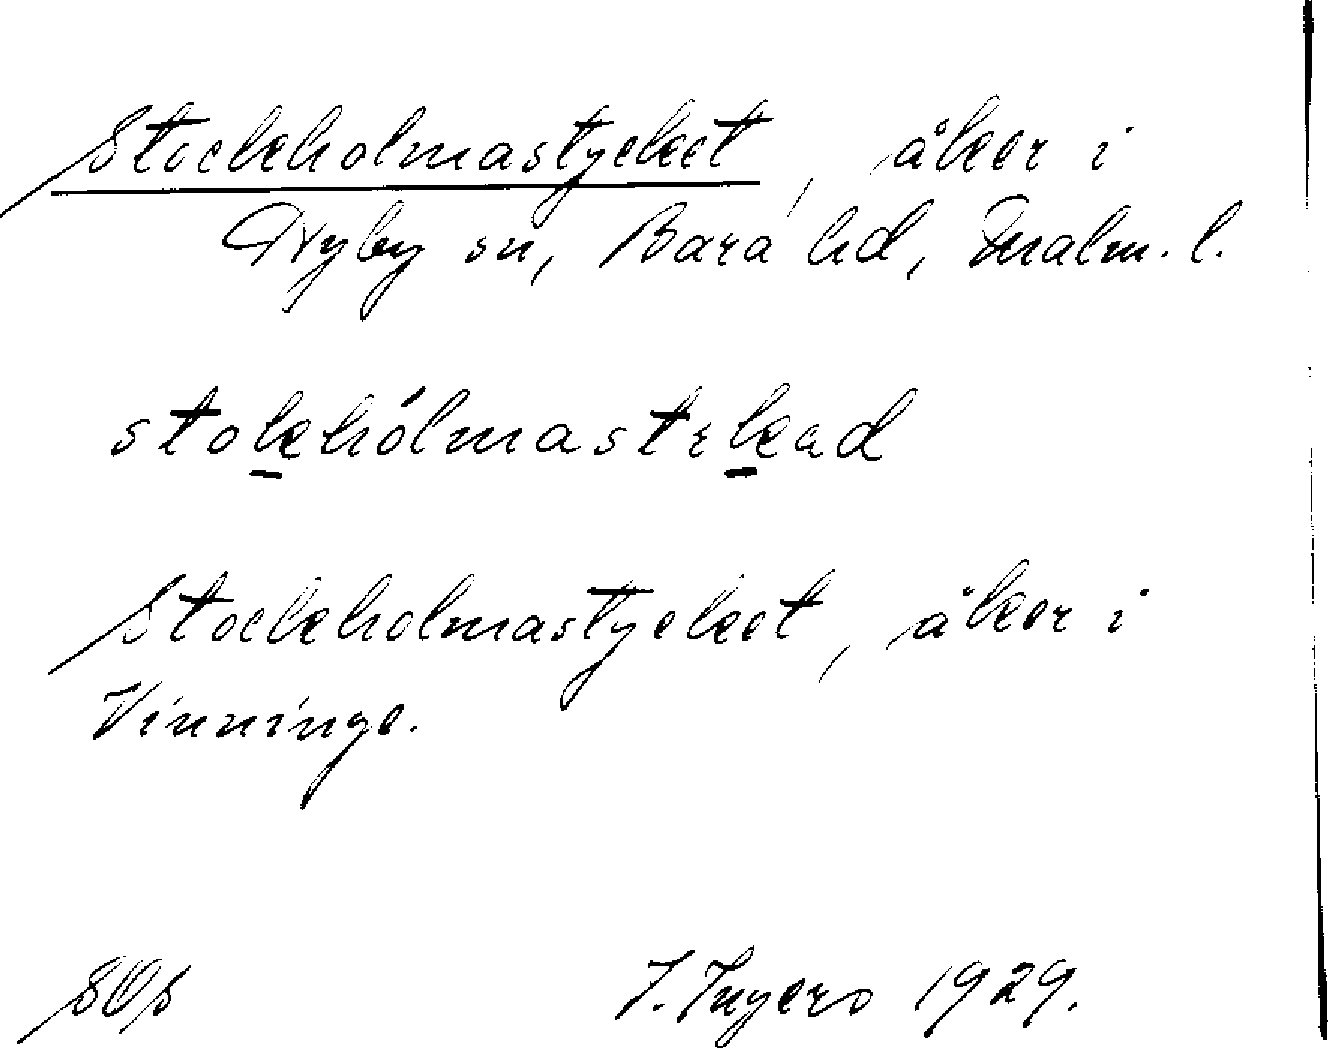 Stockholmastycket, åker i
Nyby sn, Bara hd, Malm. l.
stokhólmastekad
Stockholmastycket, åker i
Vinninge.
I. Ingers 1929.